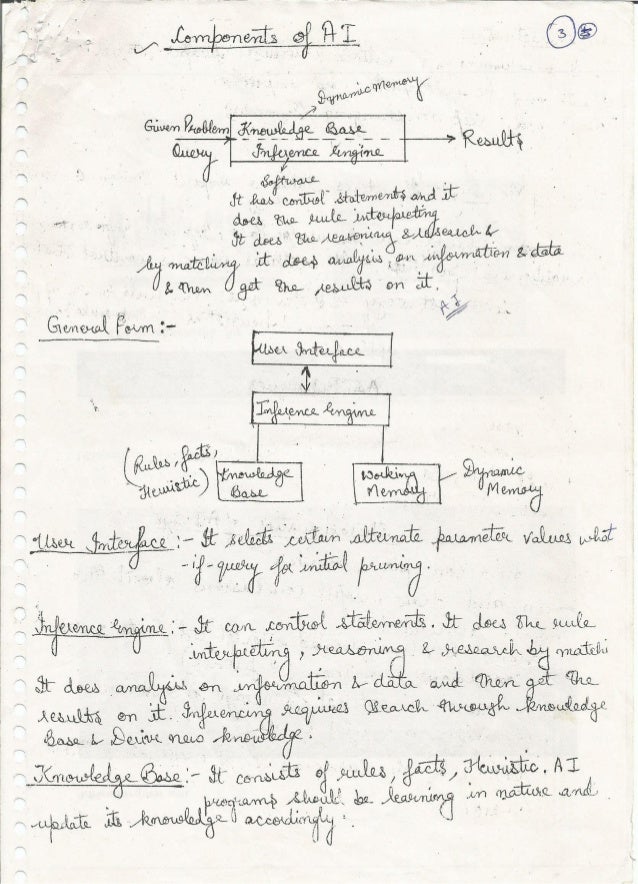 Components of AI
3
Dynamic Memory
Given Problem Knowledge Base
Query Inference Engine → Results
Software
It has control statements and it
does the rule interpreting
It does the reasoning & research &
by matching it does analysis on information & data
& then get the results on it.
AI
General Form :-
User Interface
Inference Engine
(Rules, facts, Heuristic)
Knowledge Base
Working Memory
Dynamic Memory
User Interface :- It selects certain alternate parameter values what
-if-query for initial pruning.
Inference Engine :- It can control statements. It does the rule
interpreting, reasoning & research by matchi
It does analysis on information & data and then get the
results on it. Inferencing requires search through knowledge
Base & Derive new knowledge.
Knowledge Base :- It consists of rules, facts, Heuristic. AI
programs should be learning in nature and
update its knowledge accordingly.